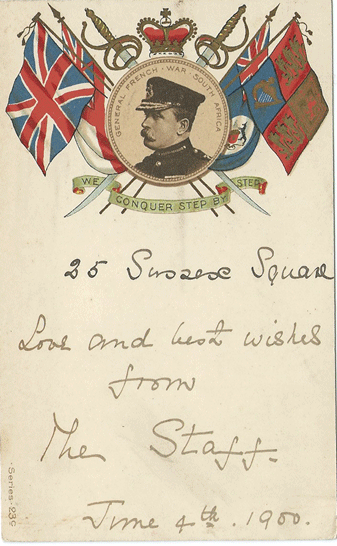 GENERAL FRENCH - WAR SOUTH AFRICA
WE CONQUER STEP BY STEP
25 Sussex Square
Love and best wishes
from
The Staff.
June 4th. 1900.
-Series-239